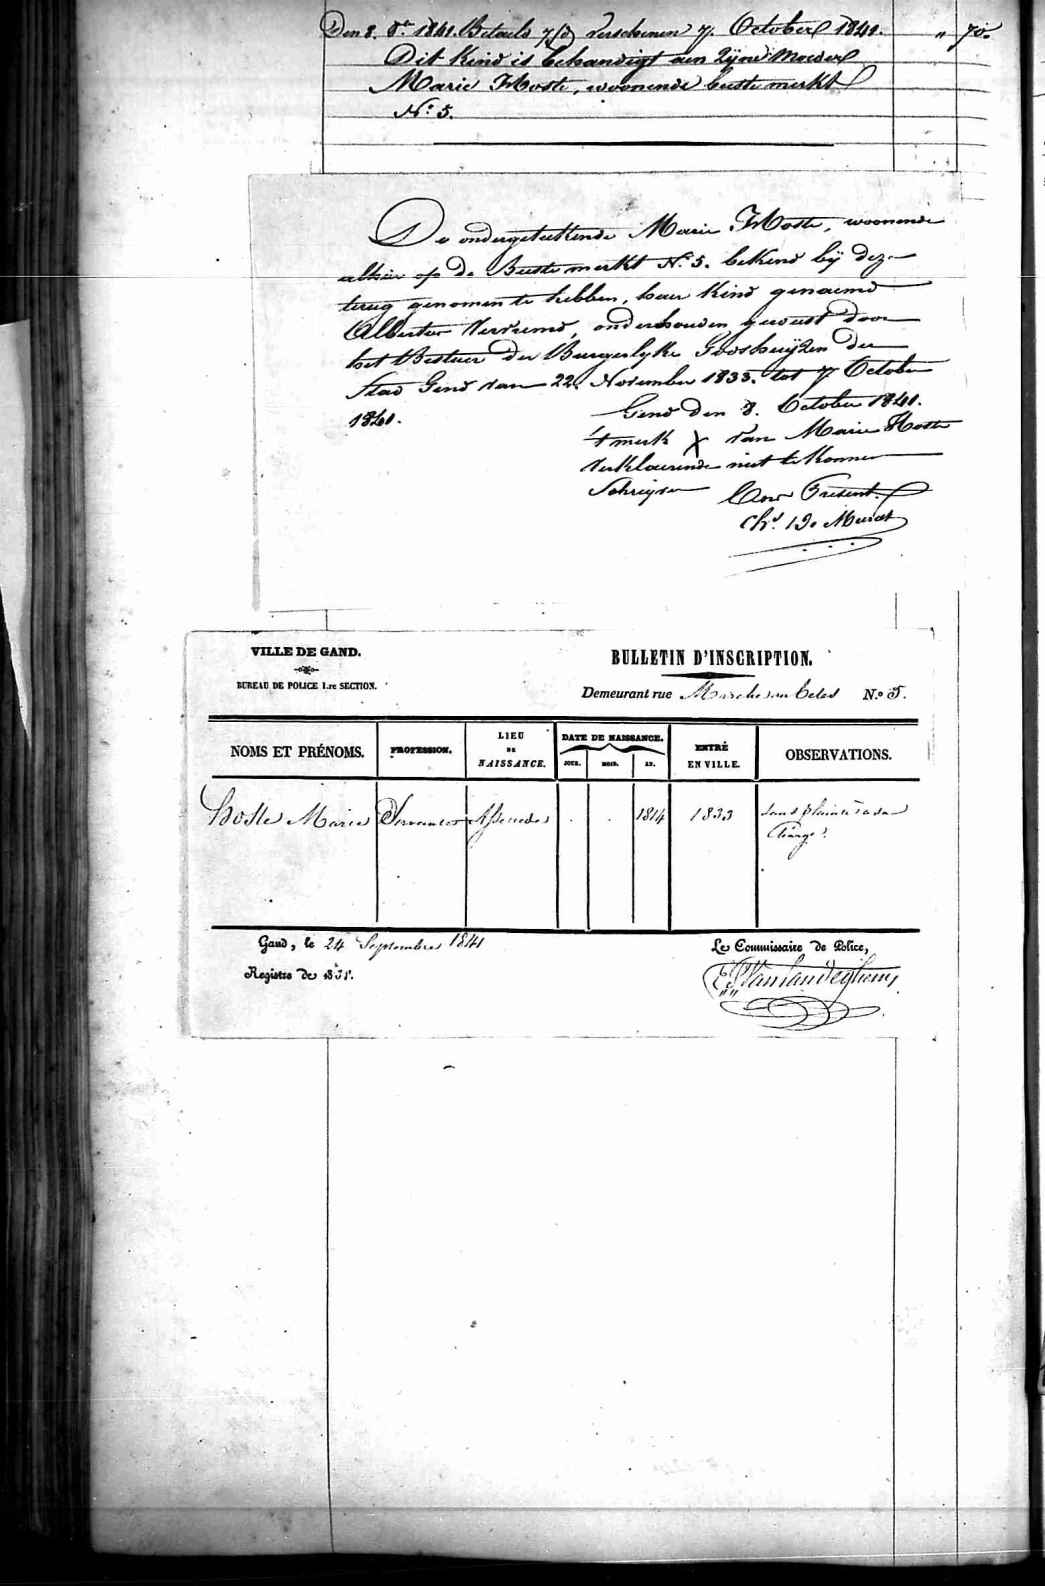 Den 8. 8r 1841. Betaeld 7/d verschenen 7. October 1841. " 70.
Dit Kind is behandigt aen Zijne Moeder
Marie Hoste, woonende beestemerkt
No. 5.
De ondergeteekende Marie Hoste, woonende
alhier op de Beestemerkt No. 5. bekend bij deze
terug genomen te hebben, haer Kind genaemd
Albertus Vervremd, onderhouden geweest door
het Bestuer der Burgerlyke Godshuijzen der
Stad Gend van 22. November 1833. tot 7 October
1841.
Gend den 8. October 1841.
't merk X van Marie Hoste
verklaerende niet te konnen
Schrijven
Coram Present.
Chs. De Meert
VILLE DE GAND.
BUREAU DE POLICE 1.re SECTION.
BULLETIN D'INSCRIPTION.
Demeurant rue Marché au betes N.o 5.
NOMS ET PRÉNOMS. PROFESSION. LIEU DE NAISSANCE. DATE DE NAISSANCE. JOUR. MOIS. AN. ENTRÉ EN VILLE. OBSERVATIONS.
Hoste Marie Servante Assenede . . 1814 1833 sans plainte à sa
charge.
Gand, le 24 Septembre 1841
Le Commissaire de Police,
Registre de 1831.